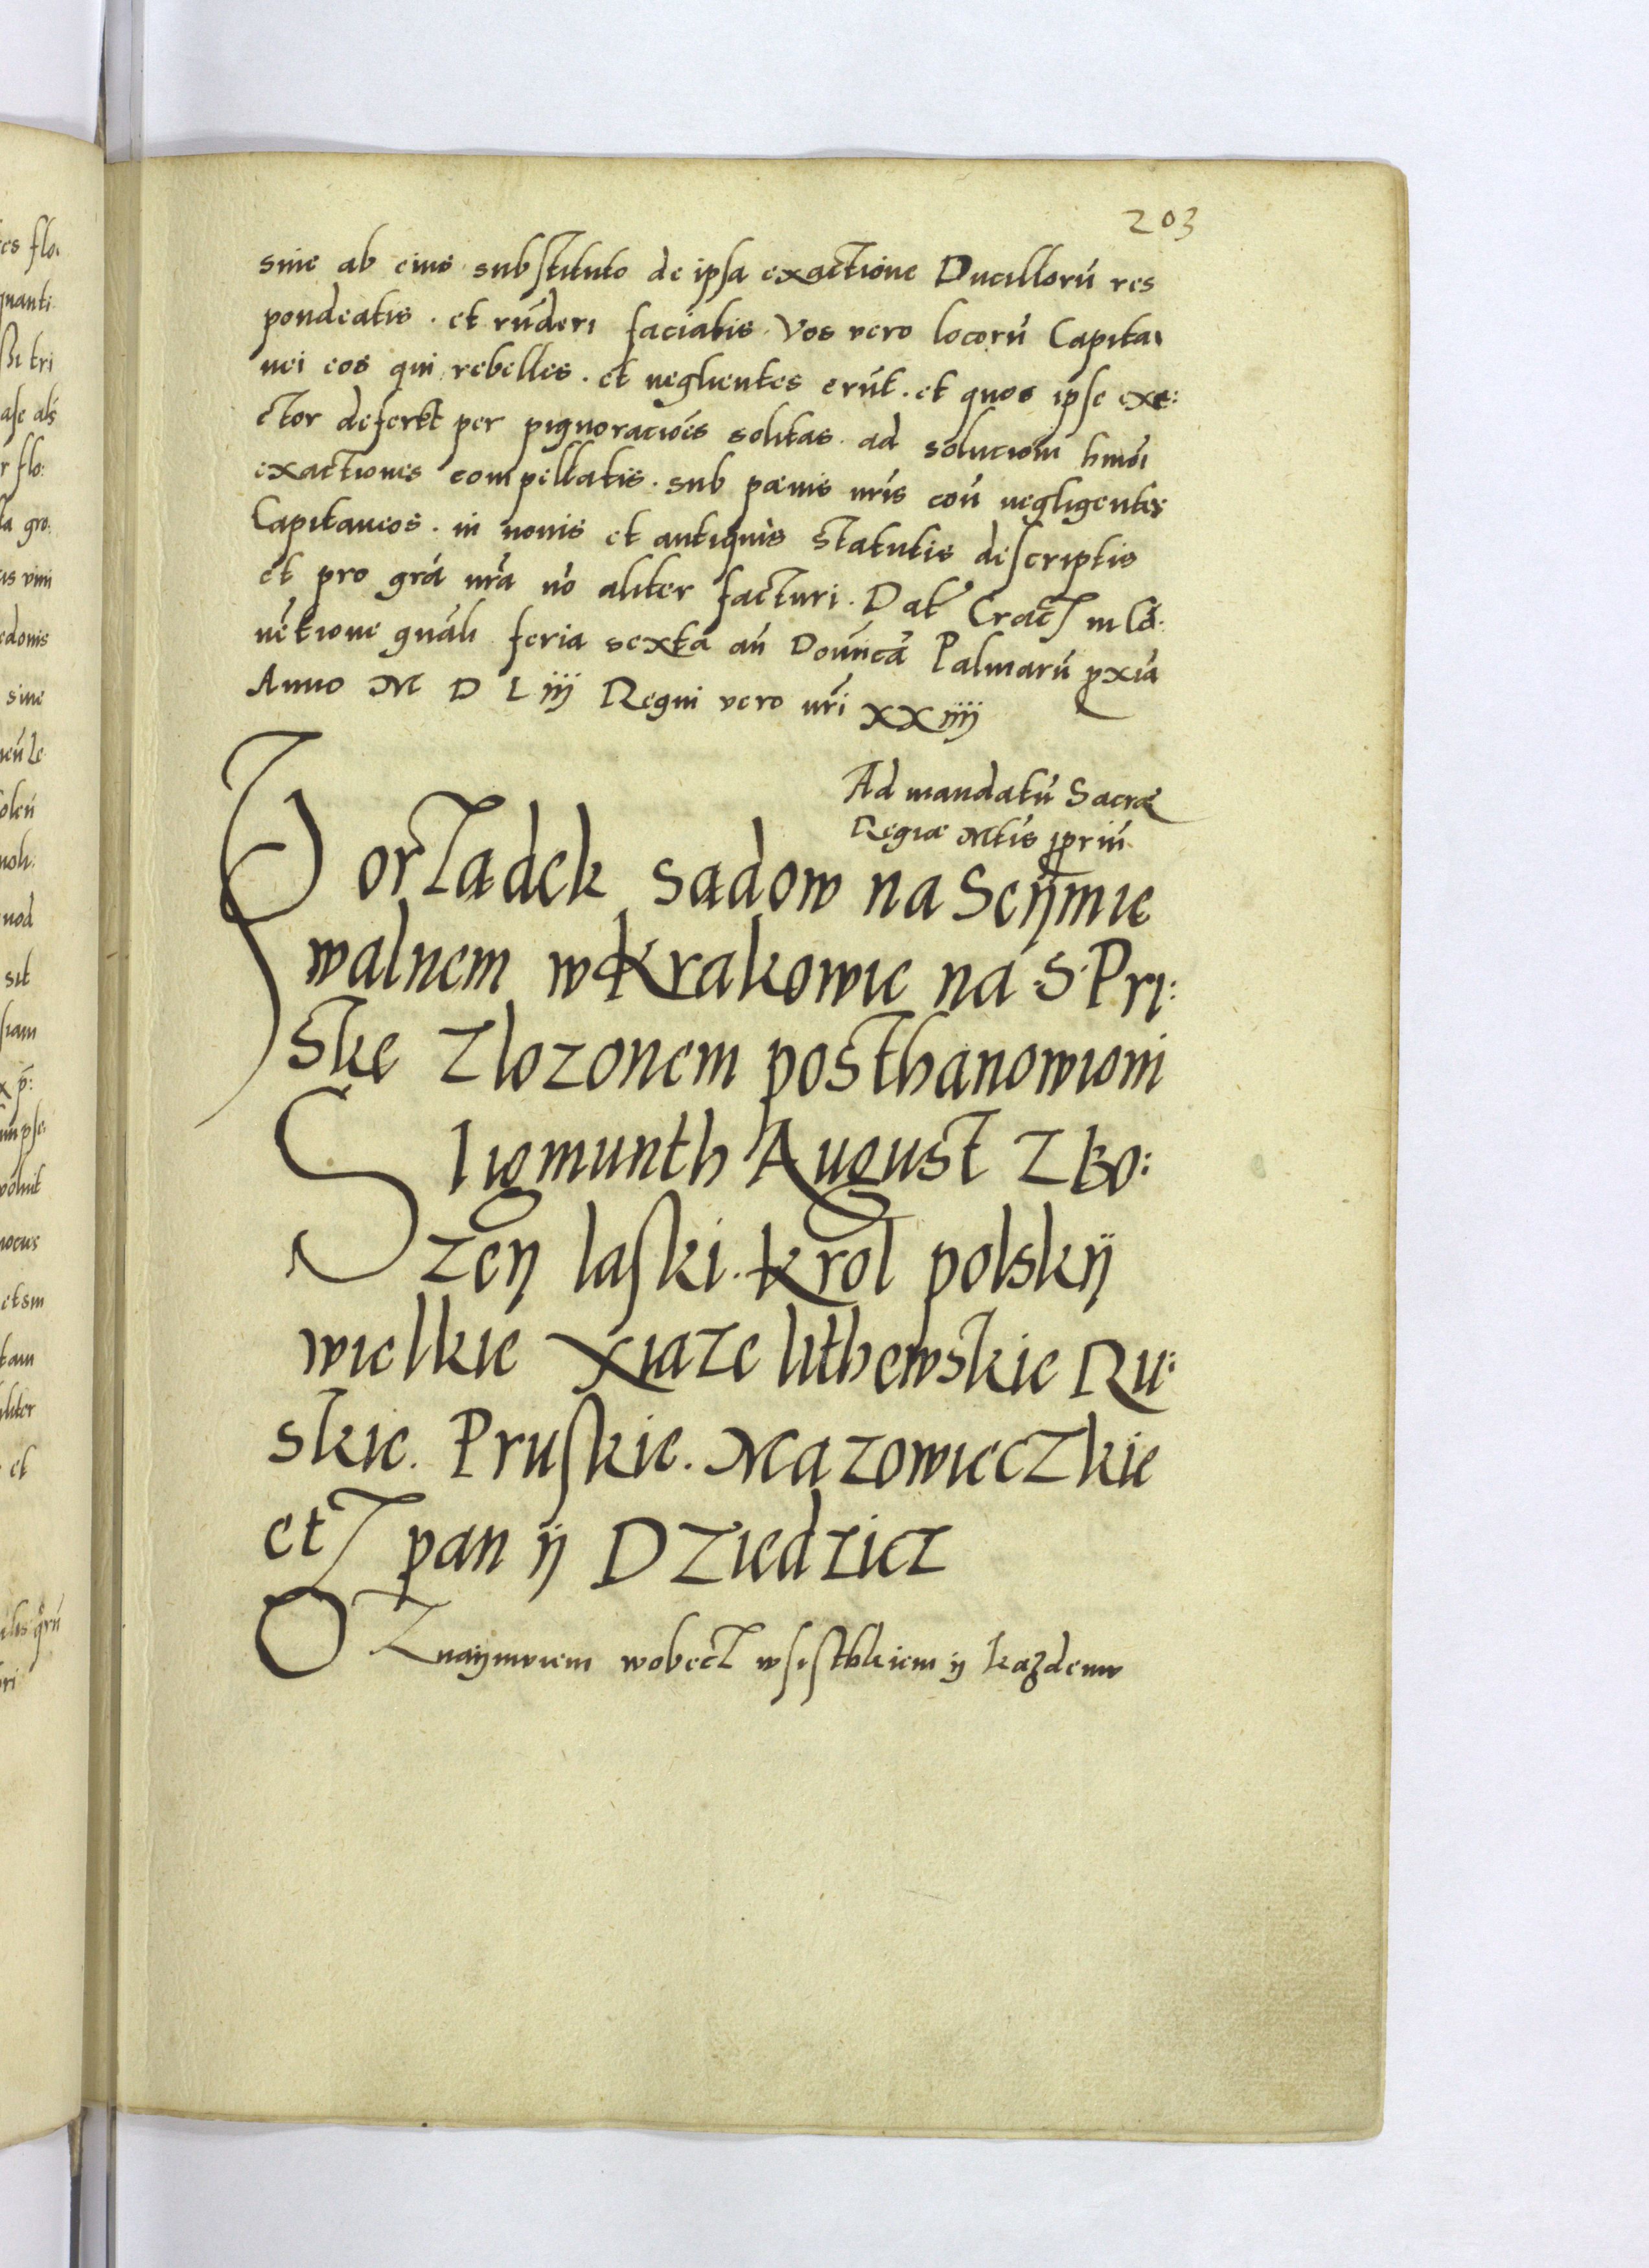 203
siue ab eius substituto de ipsa exactione Ducilloru̅ res
pondeatis. et ru̅deri faciatis. Vos vero locoru̅ Capita
nei eos qui rebelles. et neglientes eru̅t. et quos ipse exa:
ctor defert per pignoracio̅es solitas. ad solucio̅m hmo̅i
exactiones compellatis. sub pœnis nr̅is con̅ negligentes
Capitaneos. in nouis et antiquis statutis descriptis
et pro gra̅ nr̅a no̅ aliter facturi. Dat̅ Cracꝫ in Co̅:
ue̅tione gn̅ali feria sexta an̅ Dom̅nca̅ Palmaru̅ pxia̅
Anno M D L iij Regni vero nr̅i XXiiij
Ad mandatu̅ Sacræ
Regiæ Mtis ppriu̅
Porzadek sadow na Seÿmie
walnem w Krakowie na S. Pri:
ske zlozonem posthanowioni
Sigmunth August Z Bo:
zeÿ laski. Krol polskÿ
wielkie Xiaze lithewskie Ru:
skie. Pruskie. Mazowieczkie
etꝫ pan ÿ Dziedzicz
Oznaÿmuiem wobecz wsistkiem ÿ kazdemu